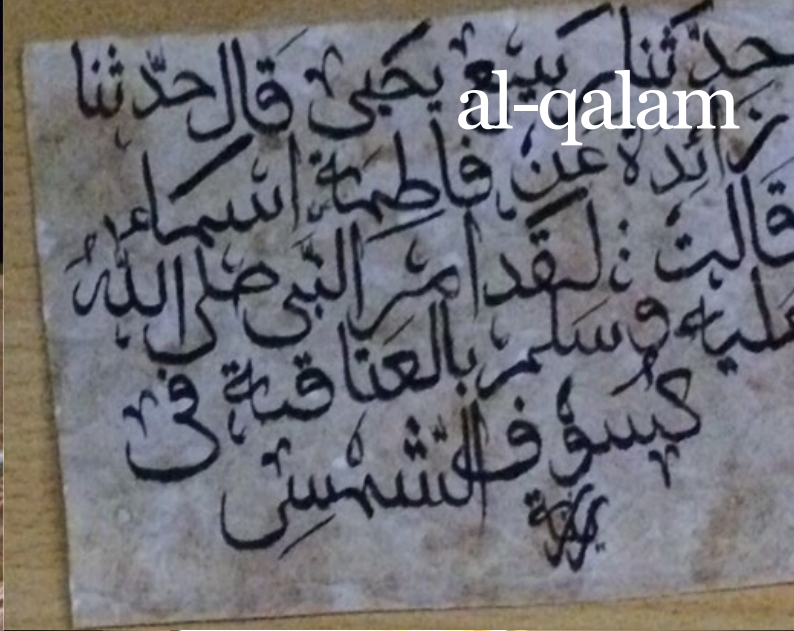 حدّثنا ربيع يحيى قال حدّثنا
al-qalam
زائدة عن فاطمة اسماء
قالت : لقد امر النبي صلى الله
عليه وسلم بالعتاقة فى
كسوف الشمس